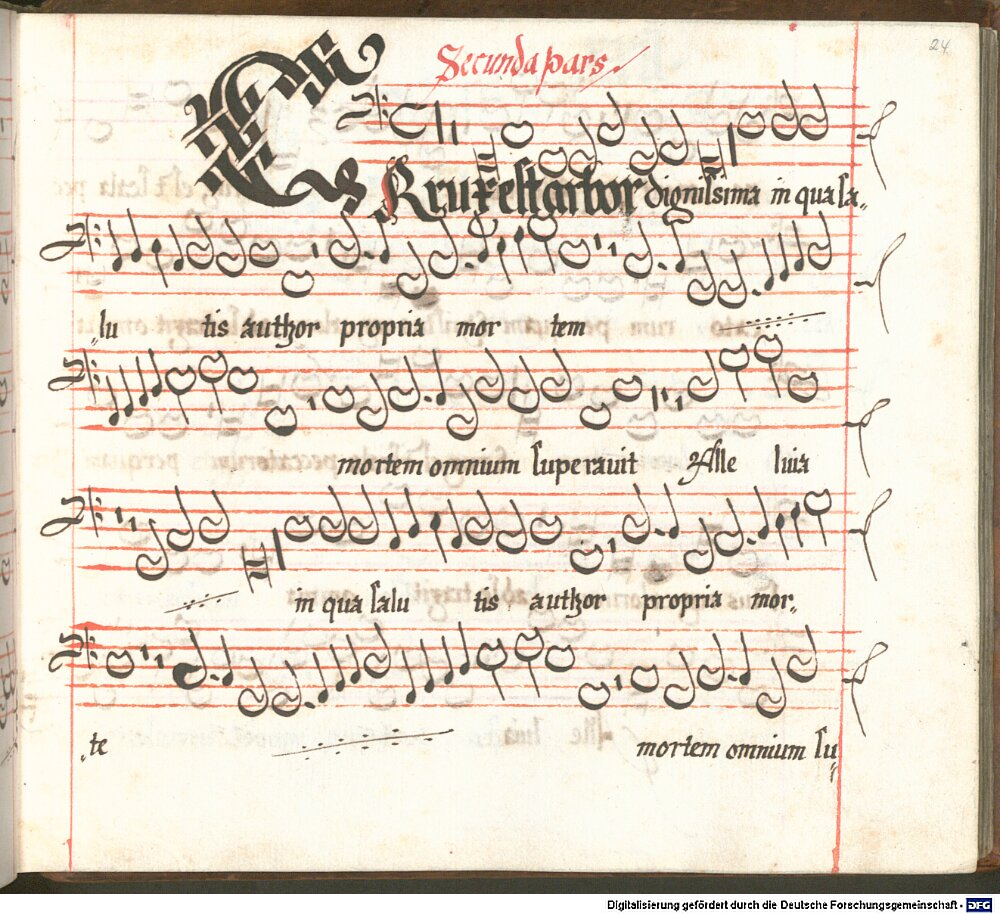 24
Secunda pars.
Crux est arbor dignissima in qua sa„
„lu tis author propria mor tem
mortem omnium superavit Alle luia
in qua salu tis author propria mor„
„te mortem omnium su„
Digitalisierung gefördert durch die Deutsche Forschungsgemeinschaft - DFG